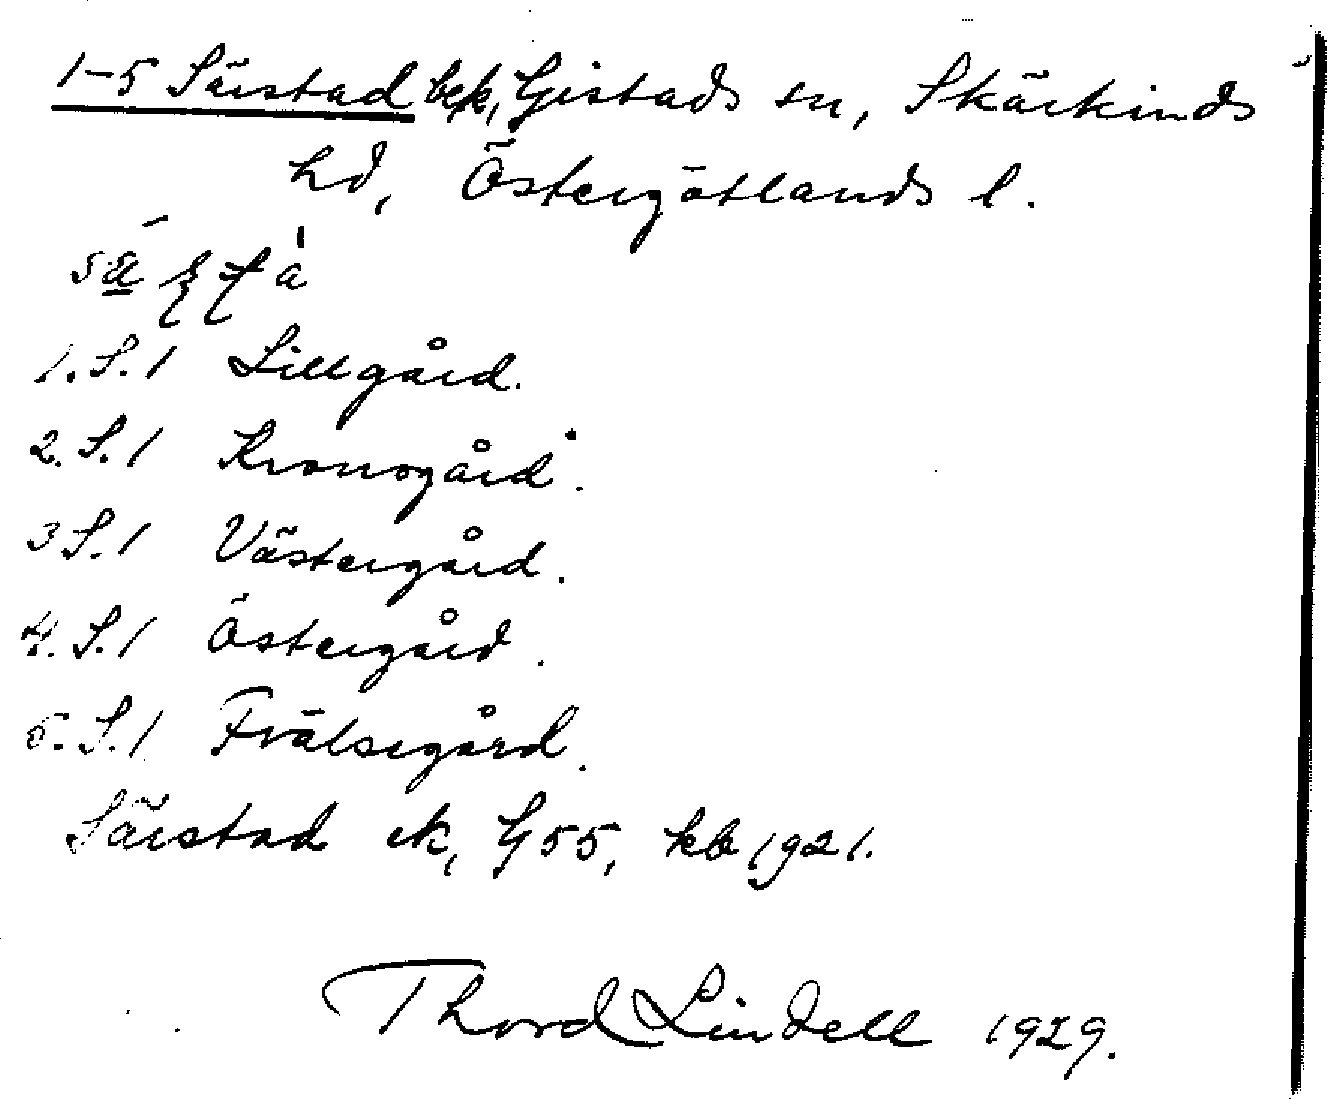 1-5 Särstad bek, Gistads sn, Skärkinds
hd, Östergötlands l.
1. S. 1 Lillgård.
2. S. 1 Kronogård.
3 S. 1 Västergård.
4. S. 1 Östergård.
5. S. 1 Frälsegård.
Särstad ek, G 55, kb 1921.
Thord Lindell 1929.